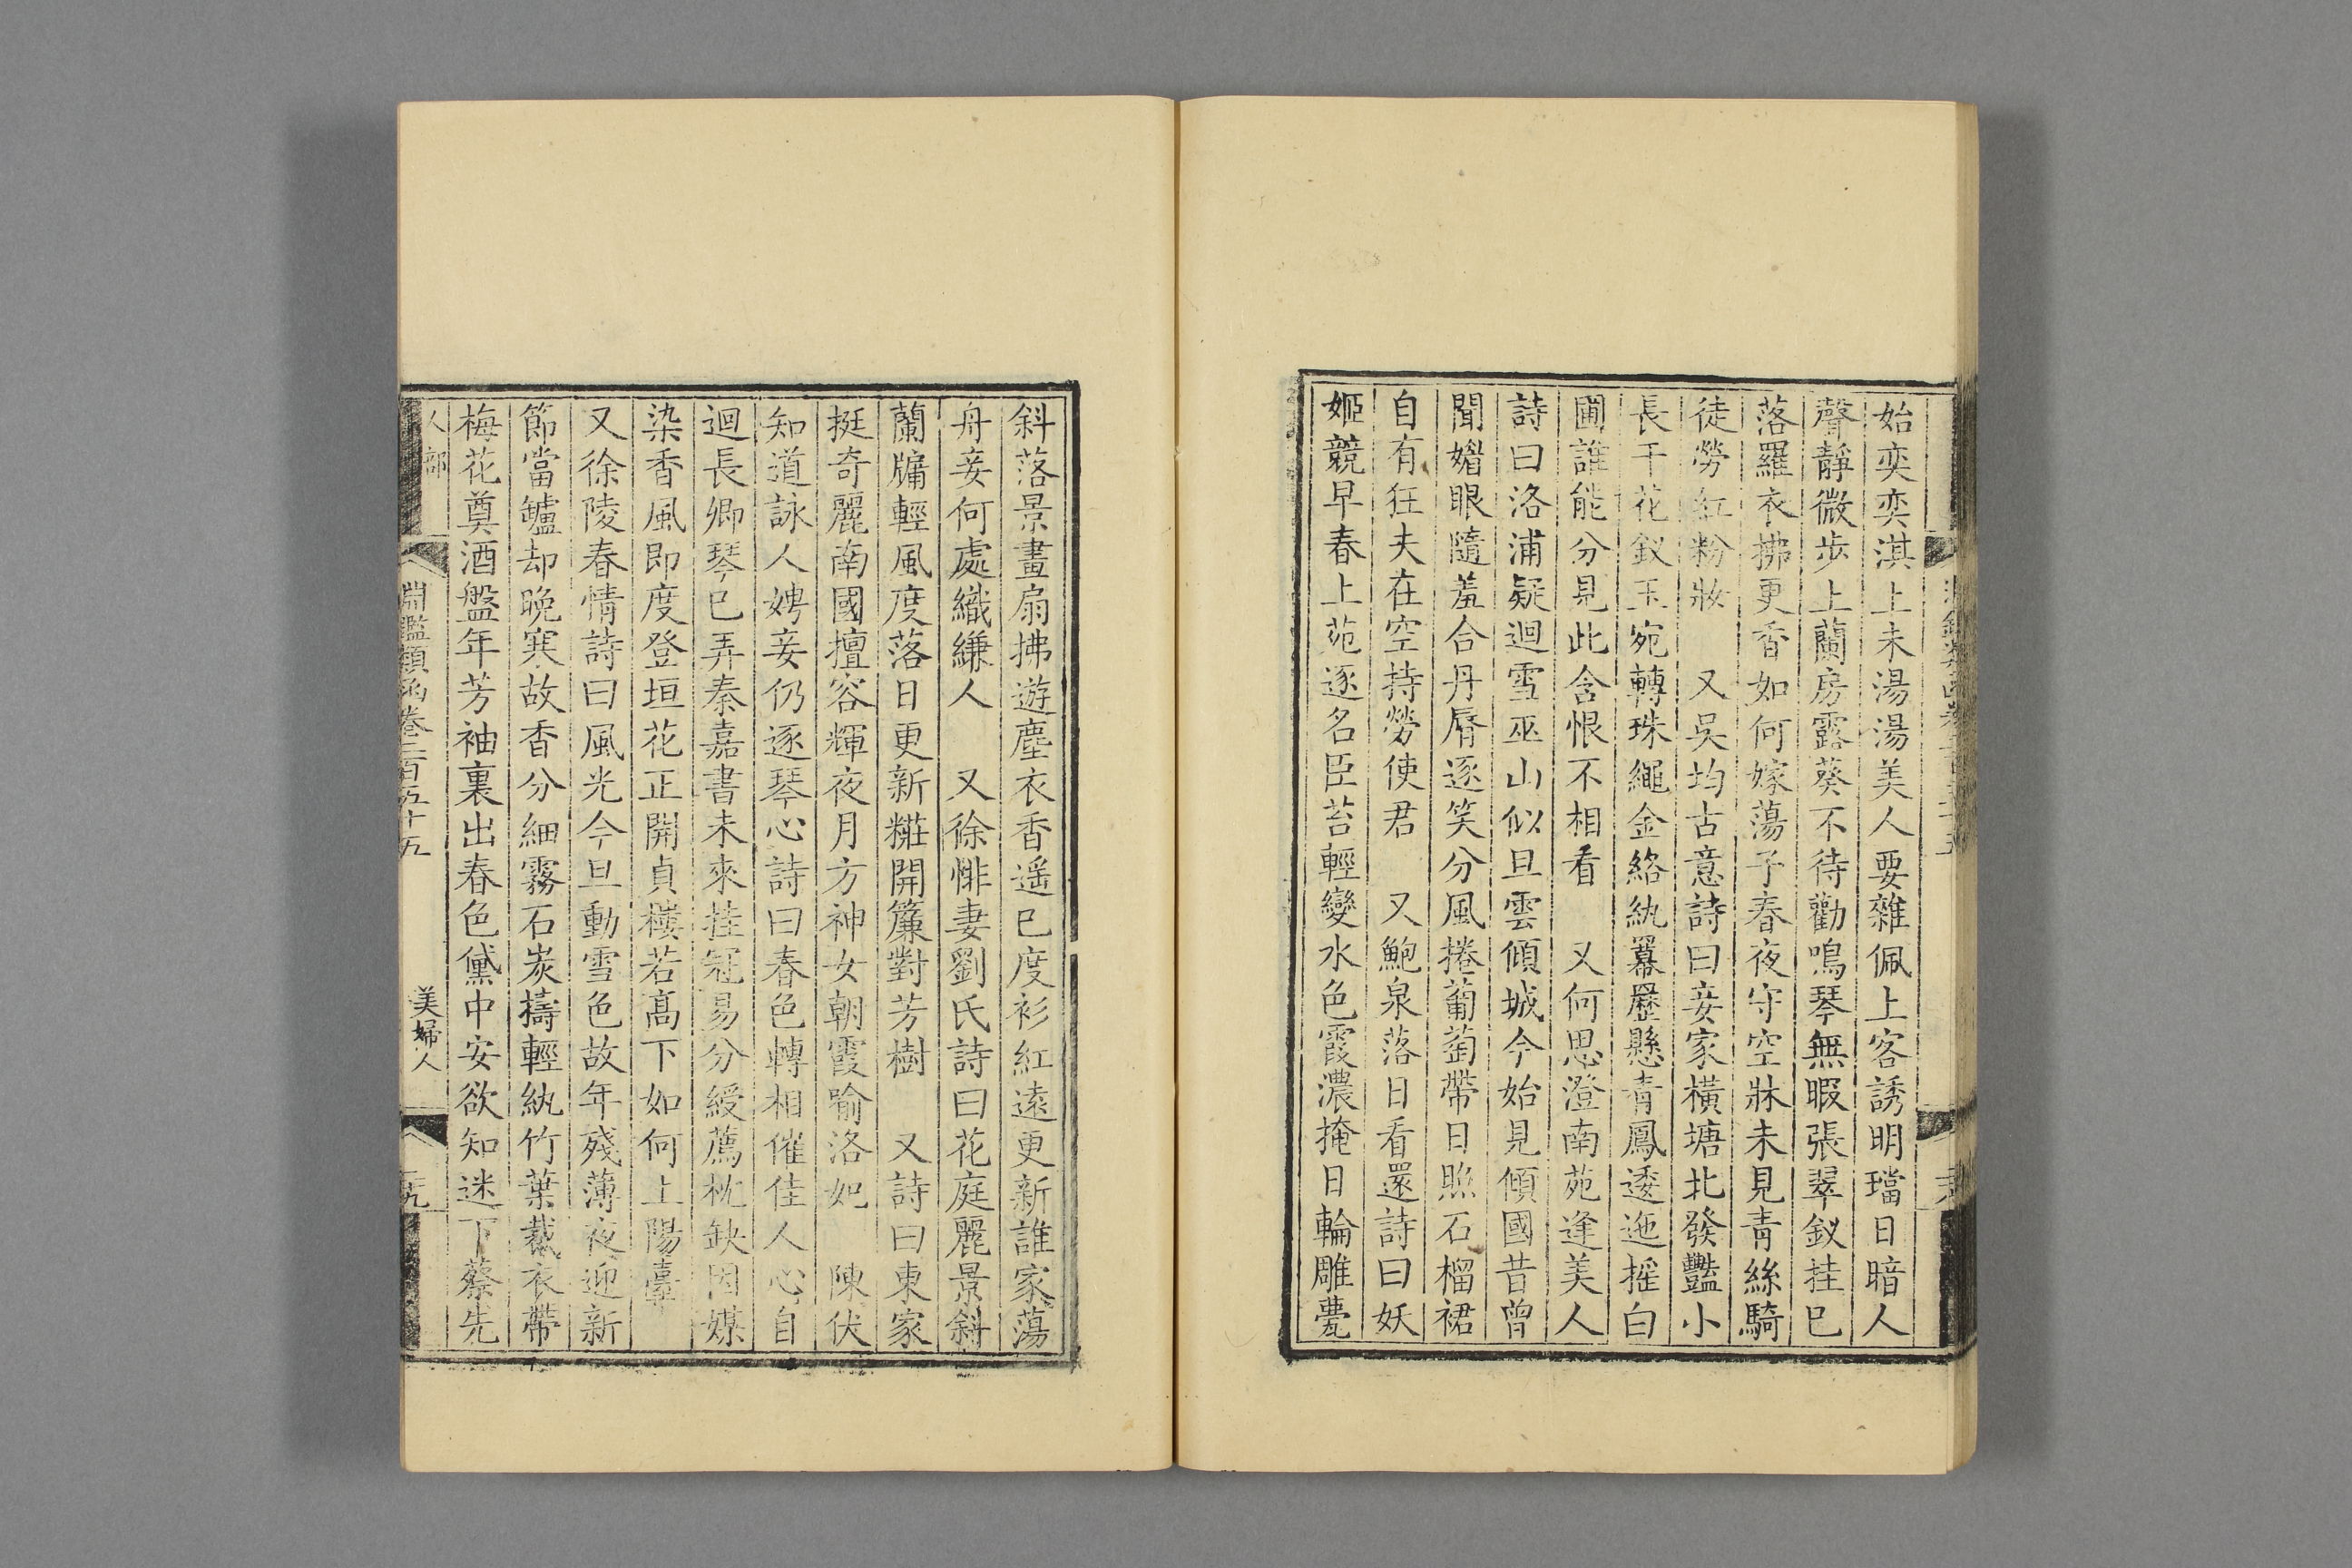 始奕奕淇上未湯湯美人要雜佩上客誘明璫日暗人
聲靜微步上蘭房露葵不待勸鳴琴無暇張翠釵挂已
落羅衣拂更香如何嫁蕩子春夜守空牀未見青絲騎
徒勞紅粉妝　又吳均古意詩曰妾家橫塘北發豔小
長干花釵玉宛轉珠繩金絡紈羃䍥懸青鳳逶迤摇白
團誰能分見此含恨不相看　又何思澄南苑逢美人
詩曰洛浦疑迴雪巫山似旦雲傾城今始見傾國昔曾
聞媚眼隨羞合丹脣逐笑分風捲蒲萄帶日照石榴裙
自有狂夫在空持勞使君　又鮑泉落日看還詩曰妖
姬競早春上苑逐名臣苔輕變水色霞濃掩日輪雕甍
斜落景畫扇拂遊塵衣香遥已度衫紅遠更新誰家蕩
舟妾何處織縑人　又徐悱妻劉氏詩曰花庭麗景斜
蘭牖輕風度落日更新糚開簾對芳樹　又詩曰東家
挺奇麗南國擅容輝夜月方神女朝霞喻洛妃　陳伏
知道詠人娉妾仍逐琴心詩曰春色轉相催佳人心自
迴長卿琴已弄秦嘉書未來挂冠易分綬薦枕缺因媒
染香風即度登垣花正開貞樓若髙下如何上陽臺
又徐陵春情詩曰風光今旦動雪色故年殘薄夜迎新
節當鑪却晚寒故香分細霧石炭擣輕紈竹葉裁衣帶
梅花奠酒盤年芳袖裏出春色黛中安欲知迷下蔡先
人部
淵鑑類函卷二百五十五
美婦人